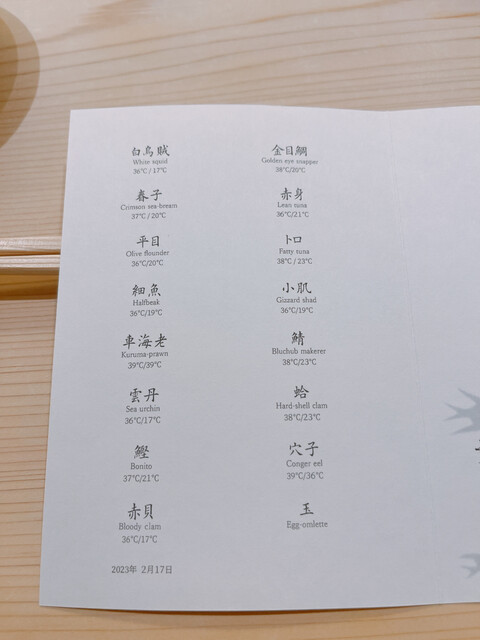 白烏賊
White squid
36℃ / 17℃
春子
Crimson sea-bream
37℃ / 20℃
平目
Olive flounder
36℃/20℃
細魚
Halfbeak
36℃/19℃
車海老
Kuruma-prawn
39℃/39℃
雲丹
Sea urchin
36℃/17℃
鰹
Bonito
37℃/21℃
赤貝
Bloody clam
36℃/17℃
2023年 2月17日
金目鯛
Golden eye snapper
38℃/20℃
赤身
Lean tuna
36℃/21℃
トロ
Fatty tuna
38℃ / 23℃
小肌
Gizzard shad
36℃/19℃
鯖
Bluchub makerer
38℃/23℃
蛤
Hard-shell clam
38℃/23℃
穴子
Conger eel
39℃/36℃
玉
Egg-omlette